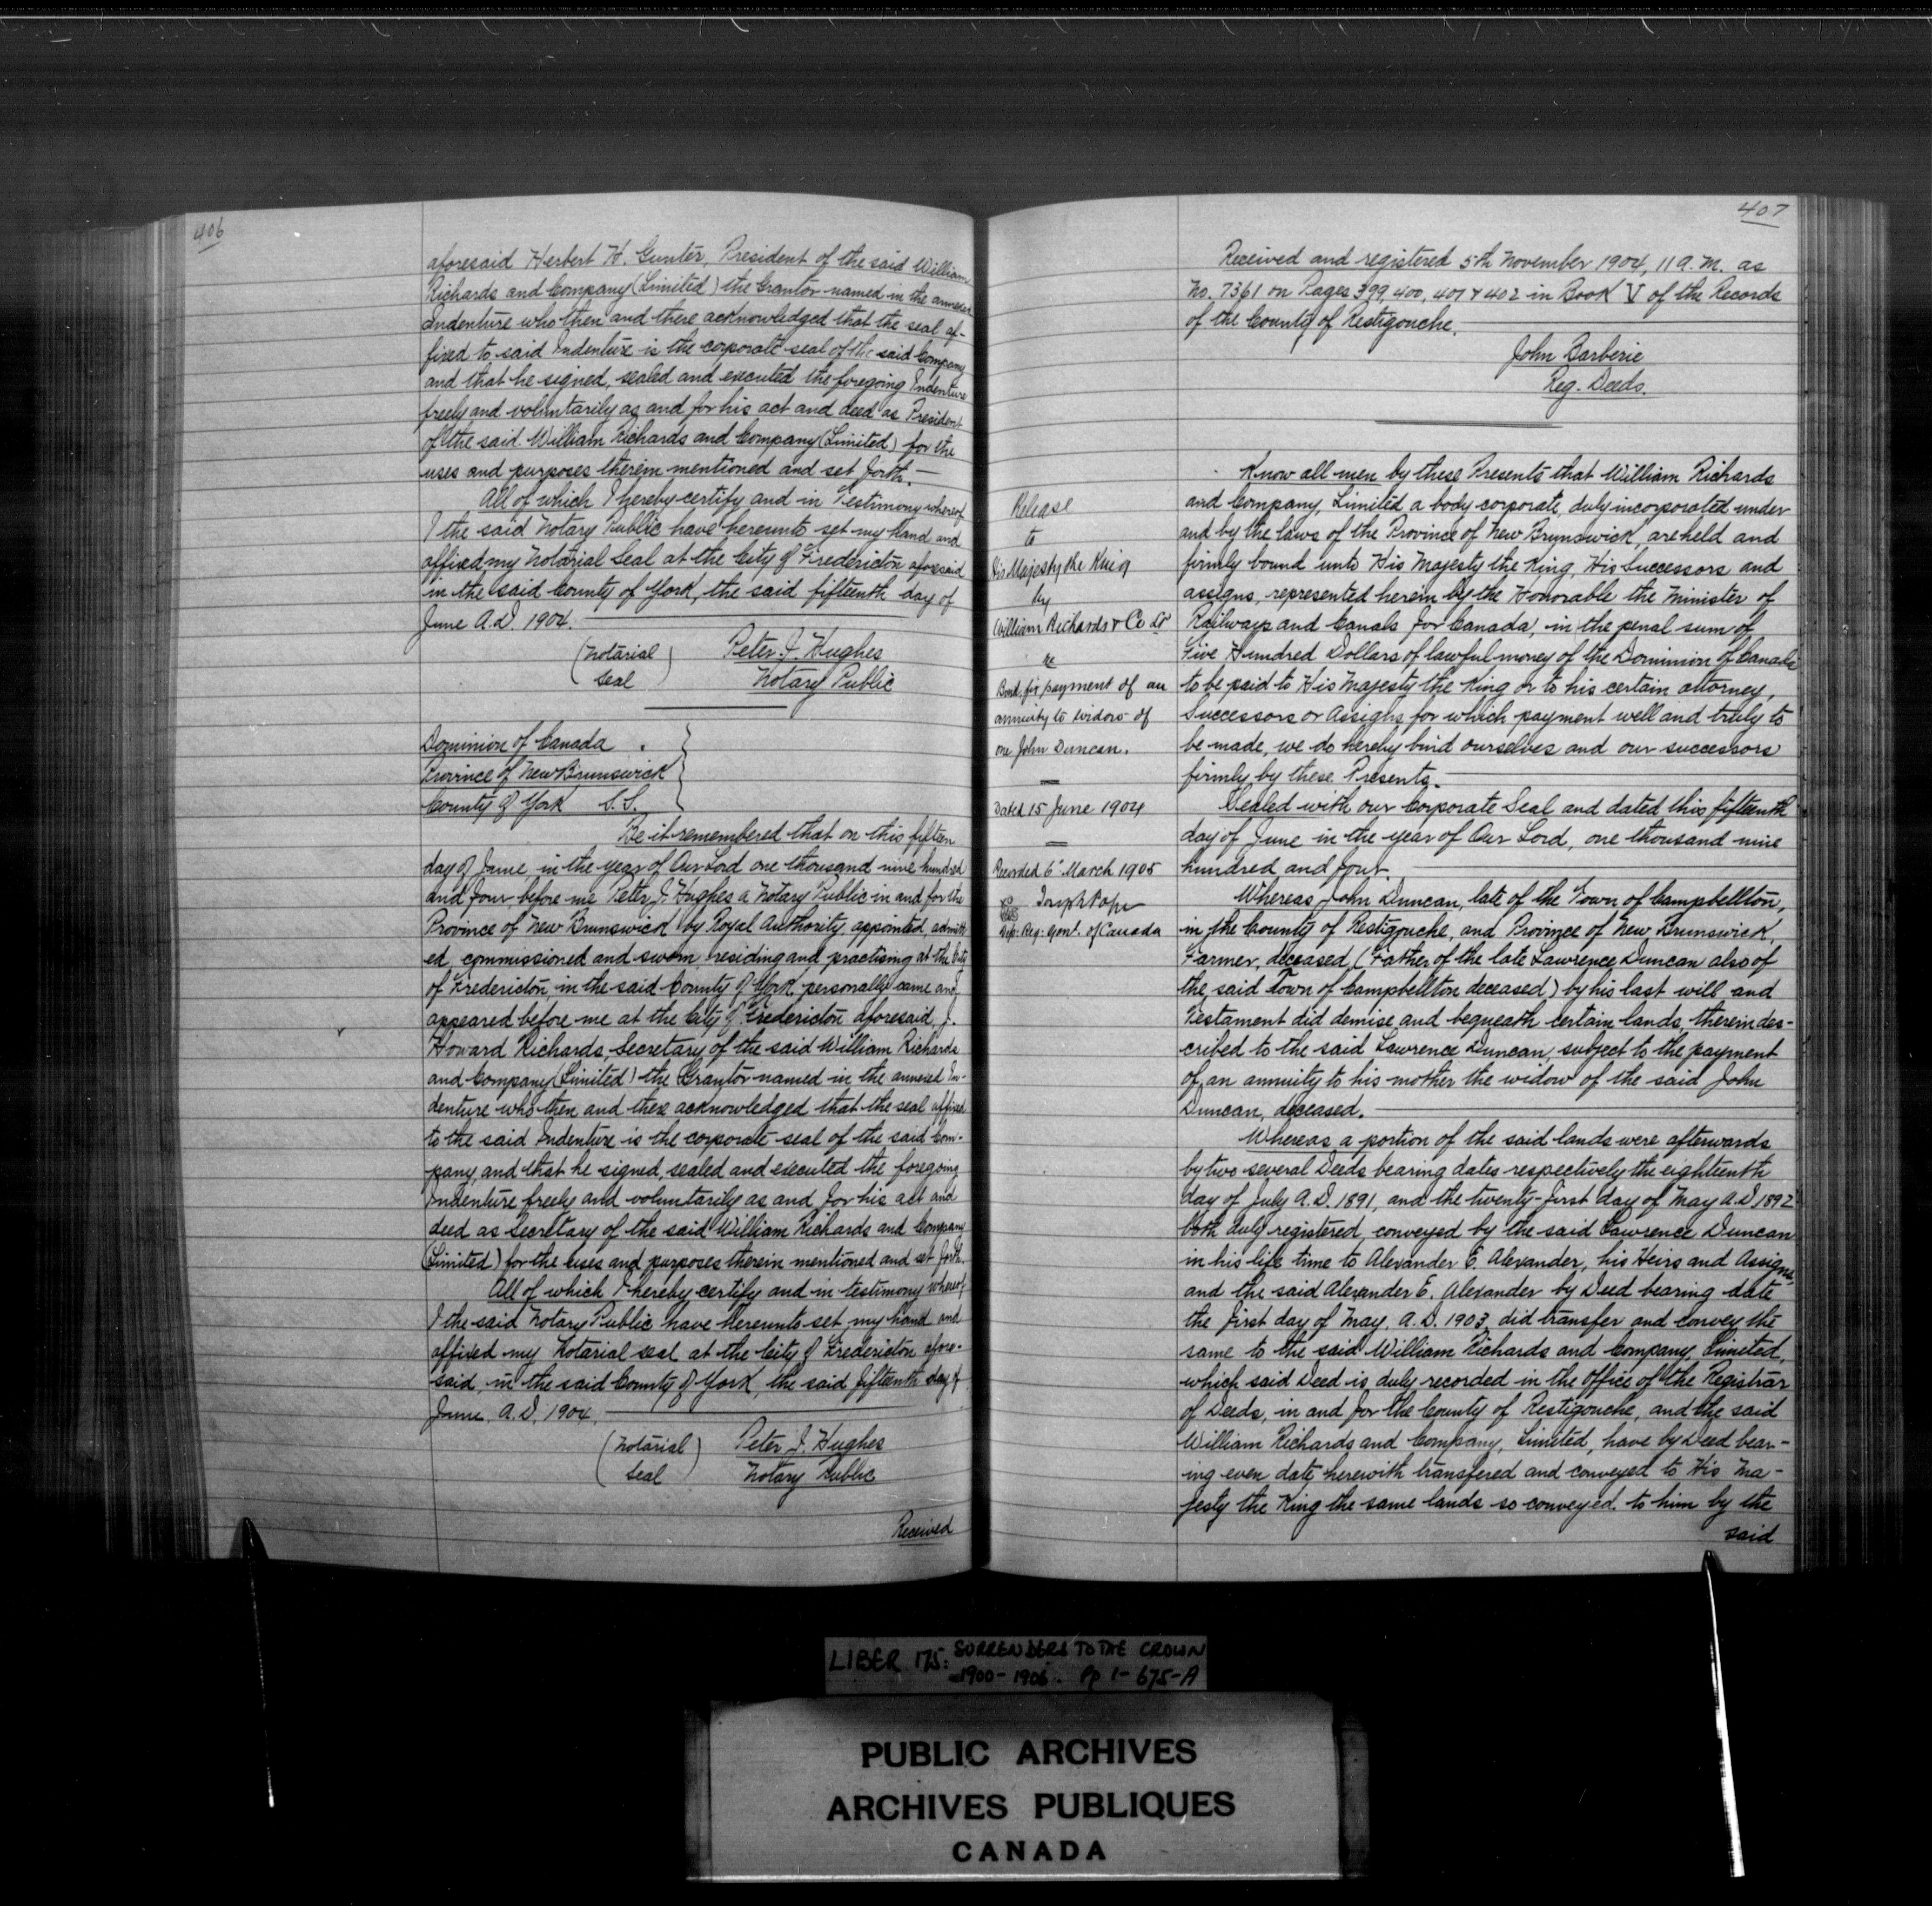 406
aforesaid Herbert H. Gunter, President of the said William
Richards and Company (Limited) the Grantor named in the annexed
Indenture who then and there acknowledged that the seal af-
fixed to said Indenture is the corporate seal of the said Company
and that he signed, sealed and executed the foregoing Indenture
freely and voluntarily as and for his act and deed as President
of the said William Richards and Company (Limited) for the
uses and purposes therein mentioned and set forth.—
All of which I hereby certify and in Testimony whereof
I the said Notary Public have hereunto set my Hand and
affixed my Notarial Seal at the City of Fredericton aforesaid
in the said County of York, the said fifteenth day of
June A.D. 1904.
(Notarial Seal) Peter J. Hughes
Notary Public
Dominion of Canada
Province of New Brunswick
County of York S.S.
Be it remembered that on this fifteen
day of June in the year of Our Lord one thousand nine hundred
and four, before me Peter J. Hughes a Notary Public in and for the
Province of New Brunswick by Royal Authority, appointed, admitt-
ed, commissioned and sworn, residing and practising at the City
of Fredericton, in the said County of York, personally came and
appeared before me at the City of Fredericton aforesaid, J.
Howard Richards, Secretary of the said William Richards
and Company (Limited) the Grantor named in the annexed In-
denture who then and there acknowledged that the seal affixed
to the said Indenture is the corporate seal of the said Com-
pany, and that he signed, sealed and executed the foregoing
Indenture freely and voluntarily as and for his act and
deed as Secretary of the said William Richards and Company
(Limited) for the uses and purposes therein mentioned and set forth.
All of which I hereby certify and in testimony whereof
I the said Notary Public have hereunto set my hand and
affixed my Notarial seal at the City of Fredericton afore-
said, in the said County of York, the said fifteenth day of
June, A.D. 1904.
(Notarial Seal) Peter J. Hughes
Notary Public
Received
407
Received and registered 5th November 1904, 11 A.M. as
No. 7361 on Pages 399, 400, 401 & 402 in Book V of the Records
of the County of Restigouche.
John Barberie
Reg. Deeds.
Release
to
His Majesty the King
by
William Richards & Co Ld
re
Bond for payment of an
annuity to widow of
one John Duncan.
Dated 15 June 1904
Recorded 6 March 1905
Joseph Pope
Dep: Reg: Genl. of Canada
Know all men by these Presents that William Richards
and Company, Limited a body corporate, duly incorporated under
and by the laws of the Province of New Brunswick, are held and
firmly bound unto His Majesty the King, His Successors and
assigns, represented herein by the Honorable the Minister of
Railways and Canals for Canada, in the penal sum of
Five Hundred Dollars of lawful money of the Dominion of Canada
to be paid to His Majesty the King or to his certain attorney,
Successors or Assigns for which payment well and truly to
be made, we do hereby bind ourselves and our successors
firmly by these Presents.—
Sealed with our Corporate Seal and dated this fifteenth
day of June in the year of Our Lord, one thousand nine
hundred and four.
Whereas John Duncan, late of the Town of Campbellton,
in the County of Restigouche, and Province of New Brunswick,
Farmer, deceased (Father of the late Lawrence Duncan also of
the said Town of Campbellton deceased) by his last will and
Testament did demise and bequeath certain lands, therein des-
cribed to the said Lawrence Duncan, subject to the payment
of an annuity to his mother the widow of the said John
Duncan, deceased.—
Whereas a portion of the said lands were afterwards
by two several Deeds bearing dates respectively the eighteenth
day of July A.D. 1891, and the twenty-first day of May A.D 1892
both duly registered, conveyed by the said Lawrence Duncan
in his life time to Alexander E. Alexander, his Heirs and Assigns,
and the said Alexander E. Alexander by Deed bearing date
the first day of May, A.D. 1903, did transfer and convey the
same to the said William Richards and Company, Limited,
which said Deed is duly recorded in the Office of the Registrar
of Deeds, in and for the County of Restigouche, and the said
William Richards and Company, Limited, have by Deed bear-
ing even date herewith transfered and conveyed to His Ma-
jesty the King the same lands so conveyed to him by the
said
LIBER 175: SURRENDERS TO THE CROWN
1900-1906. Pp 1-675-A
PUBLIC ARCHIVES
ARCHIVES PUBLIQUES
CANADA